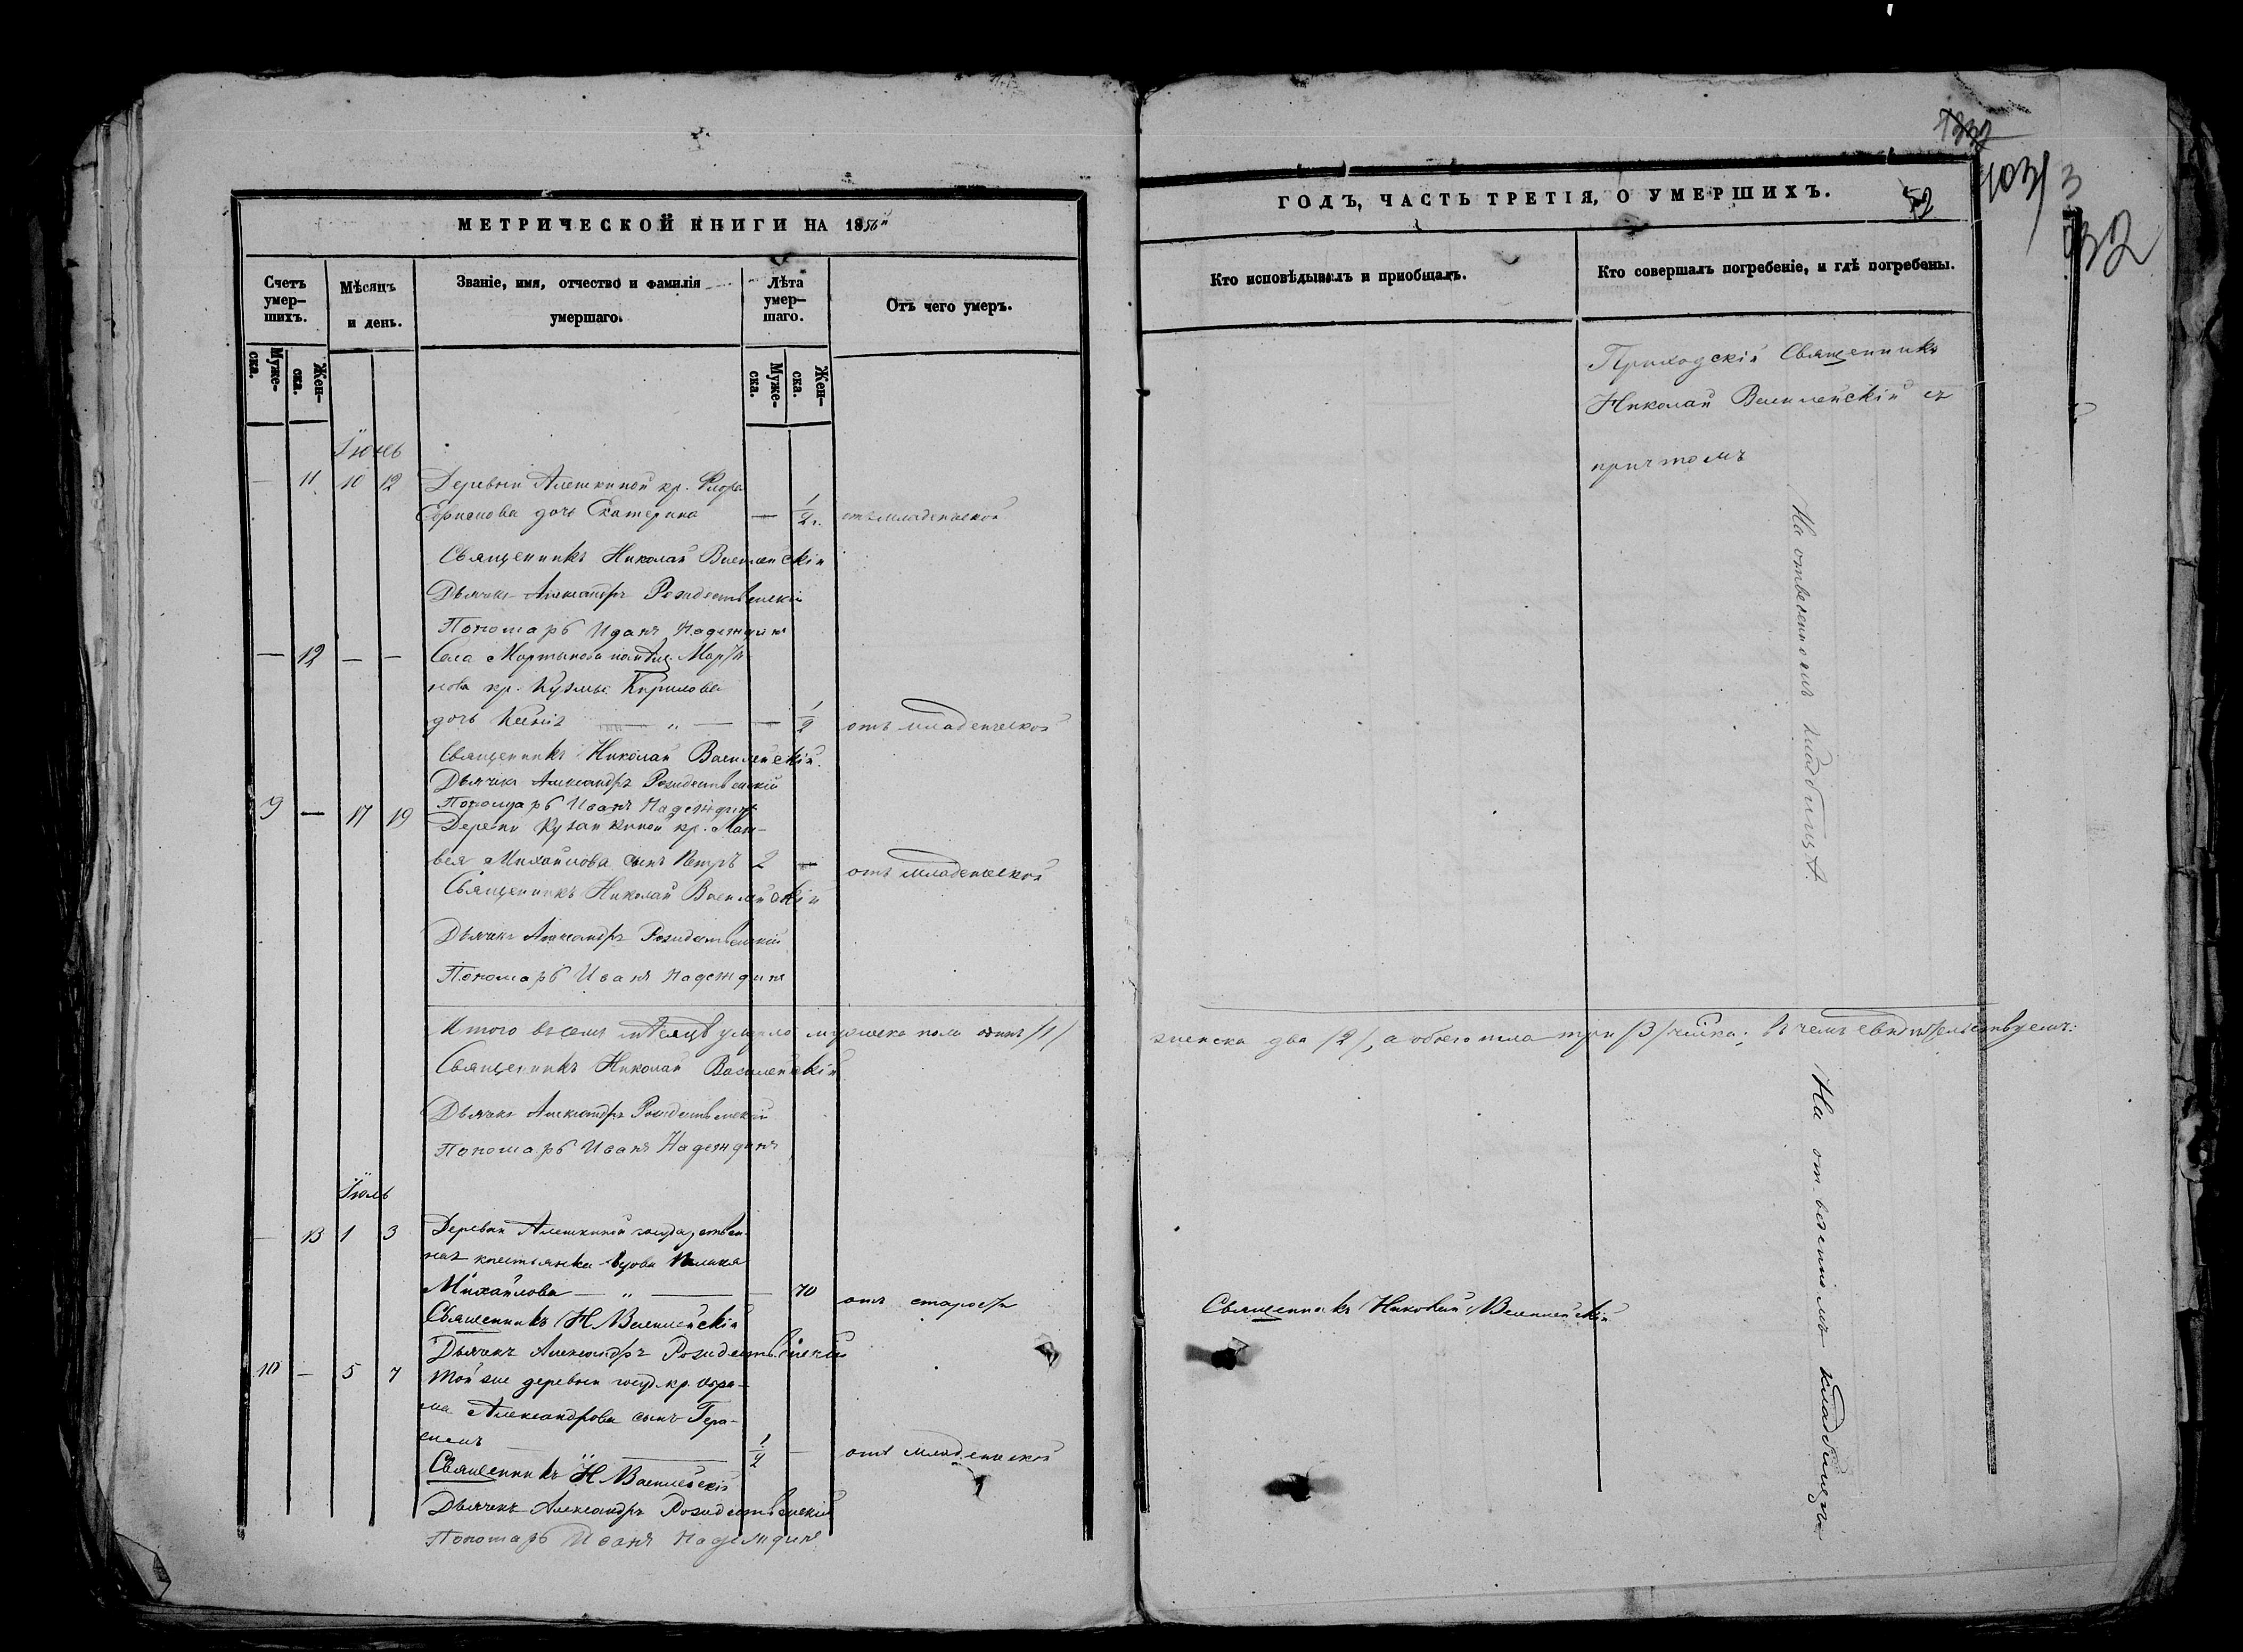 МЕТРИЧЕСКОЙ КНИГИ НА 1856
Счетъ умер-шихъ.
Мѣсяцъ и день.
Званіе, имя, отчество и фамилія умершаго.
Лѣта умер-шаго.
Отъ чего умеръ.
Муже-ска.
Жен-ска.
Муже-ска.
Жен-ска.
Іюнь
— 11 10 12 Деревни Алешкиной кр. Флора
дочь Екатерина — 1/2 г. отъ младенческой
Священникъ Николай Василейскій
Дьячекъ Александръ Рождественскій
Пономарь Иванъ Надеждинъ
— 12 — — Села Мартынова
кр. Кузьмы Кирилова
дочь — " — — 1/2 отъ младенческой
Священникъ Николай Василейскій.
Дьячекъ Александръ Рождественскій
Пономарь Иванъ Надеждинъ
9 — 17 19 Деревни кр. Мат-
вея Михайлова сынъ Петръ 2 — отъ младенческой
Священникъ Николай Василейскій
Дьячекъ Александръ Рождественскій
Пономарь Иванъ Надеждинъ
Итого въ семъ мѣсяцѣ умерло мужеска пола одинъ /1/
Священникъ Николай Василейскій
Дьячекъ Александръ Рождественскій
Пономарь Иванъ Надеждинъ
Іюль
— 13 1 3 Деревни Алешкиной государствен-
ная крестьянка вдова
Михайлова — " — — 70 отъ старости
Священникъ Н. Василейскій
Дьячекъ Александръ Рождественскій
10 — 5 7 Той же деревни госуд. кр.
Александрова сынъ Гера-
симъ 1/2 — отъ младенческой
Священникъ Н. Василейскій
Дьячекъ Александръ Рождественскій
Пономарь Иванъ Надеждинъ
ГОДЪ, ЧАСТЬ ТРЕТІЯ, О УМЕРШИХЪ.
52
1031
32
Кто исповѣдывалъ и приобщалъ.
Кто совершалъ погребеніе, и гдѣ погребены.
Приходскій Священникъ
Николай Василейскій съ
причтомъ
На отведенномъ кладбищѣ.
женска два /2/, а обоего пола три /3/ человѣка; въ чемъ свидѣтельствуемъ:
Священникъ Николай Василейскій
На отведенномъ кладбищѣ